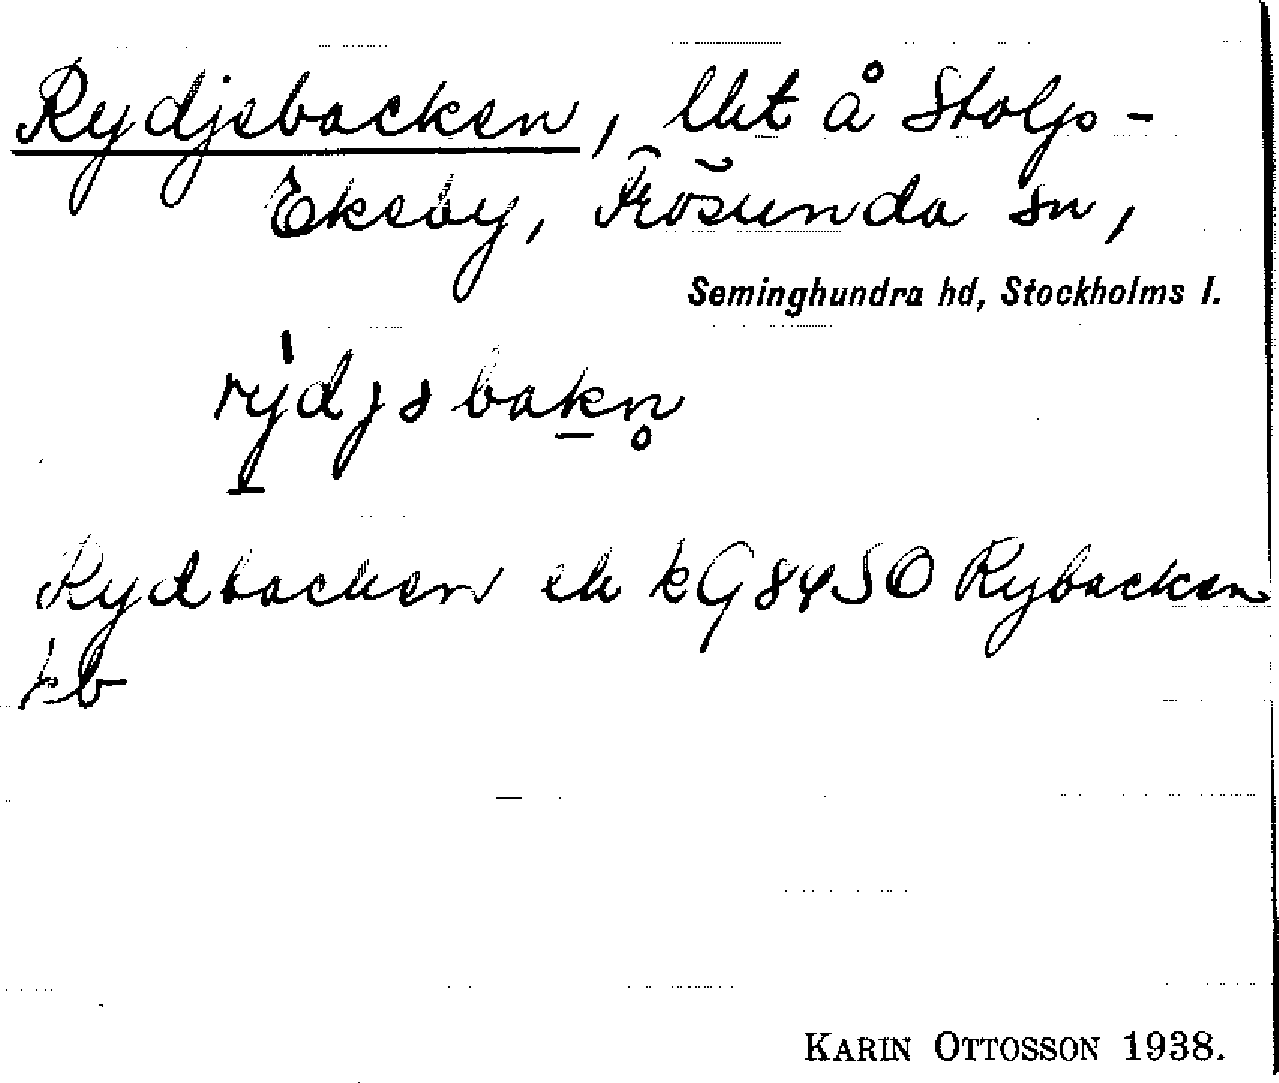 Rydjsbacken, lht å Stolps-
Eksby, Frösunda sn,
Seminghundra hd, Stockholms l.
rydjsbakn̥
Rydbacken ek kG 8450 Rybacken
kb
KARIN OTTOSSON 1938.